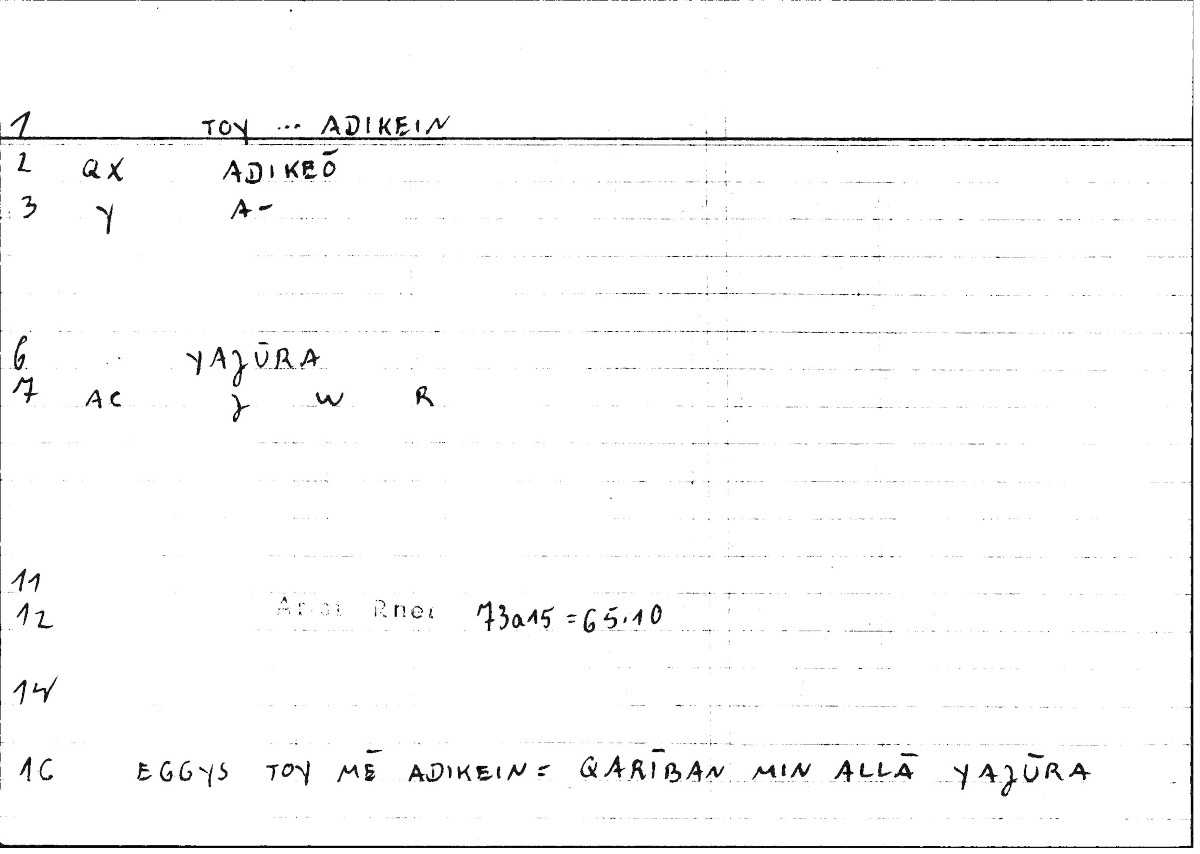 1 TOY ... ADIKEIN
2 QX ADIKEŌ
3 Y A-
6 YAȷŪRA
7 AC ȷ W R
11
12 73a15 = 65.10
14
16 EGGYS TOY MĒ ADIKEIN = QARĪBAN MIN ALLĀ YAȷŪRA